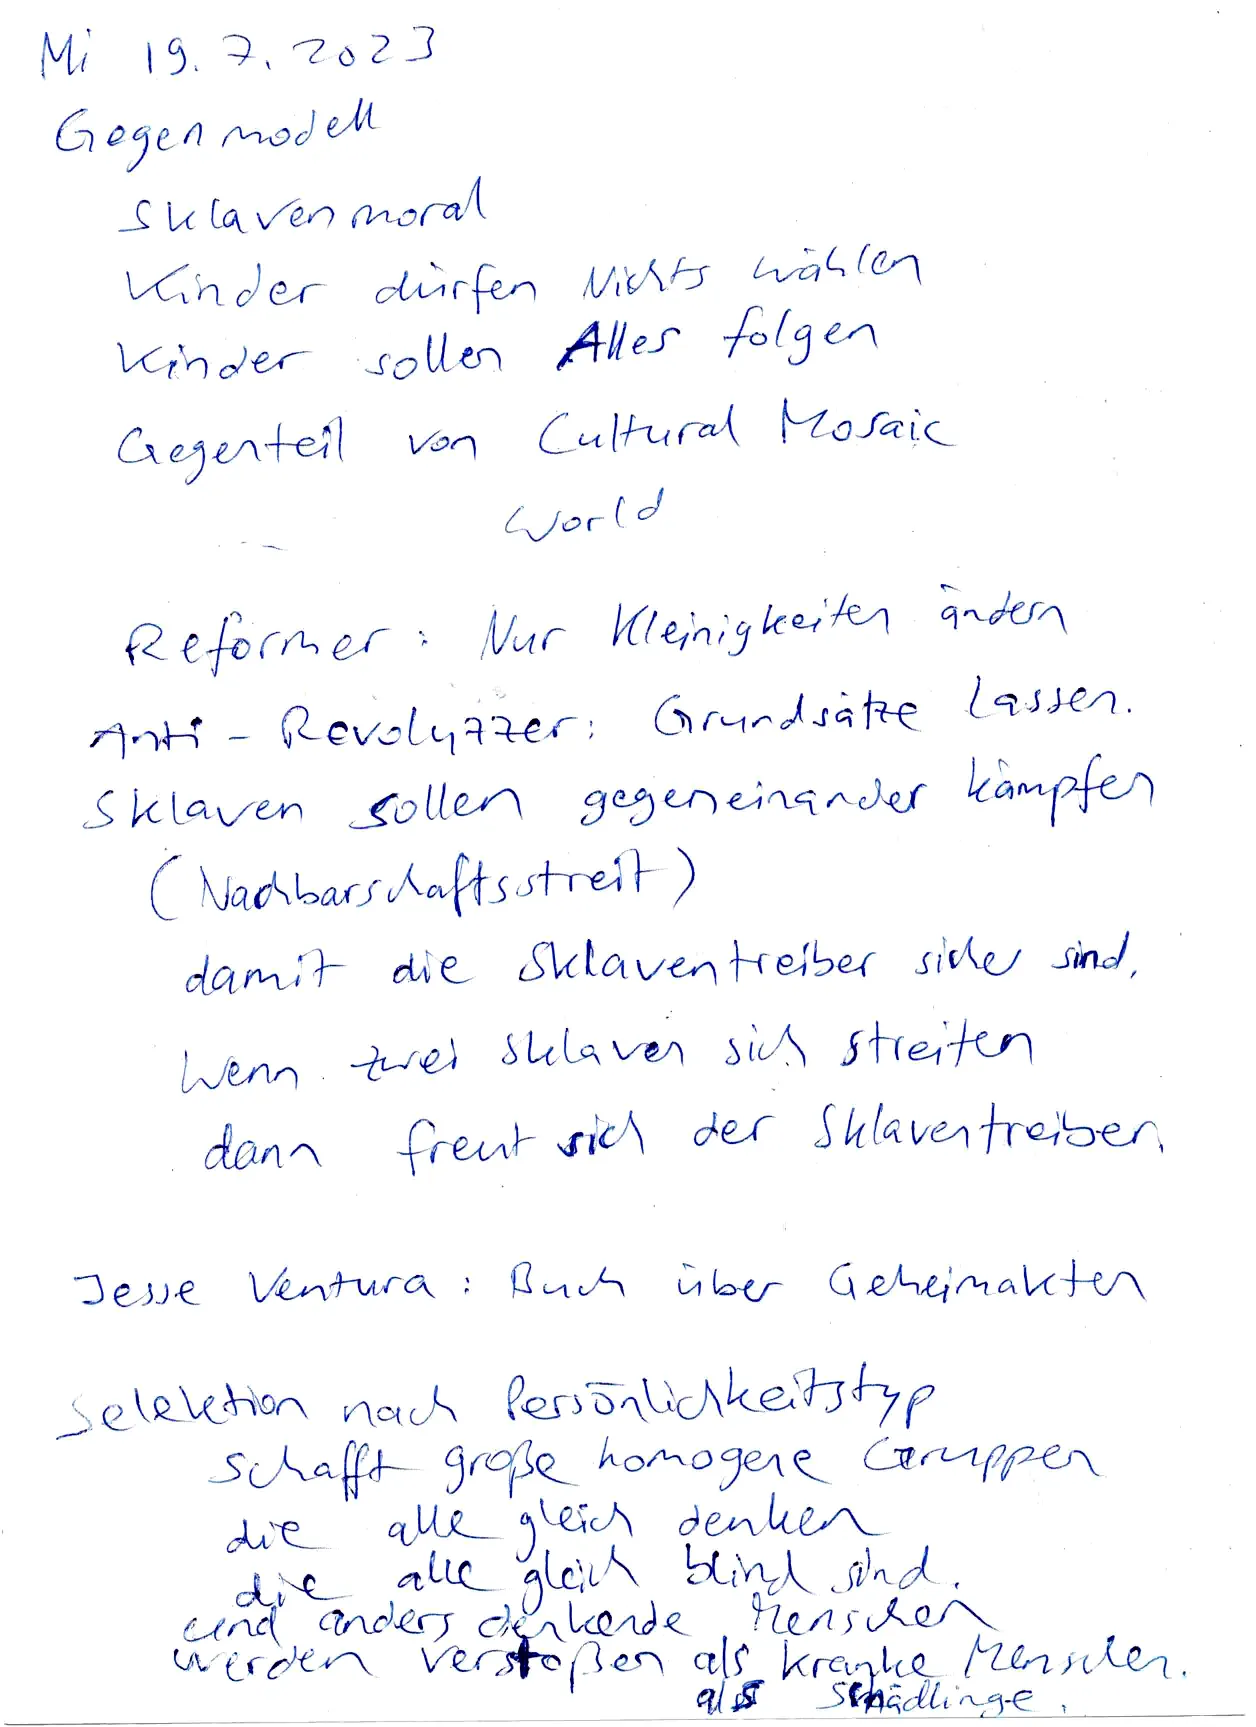 Mi 19.7.2023
Gegenmodell
Sklavenmoral
Kinder dürfen Nichts wählen
Kinder sollen Alles folgen
Gegenteil von Cultural Mosaic
World
Reformer: Nur Kleinigkeiten ändern
Anti-Revoluzzer: Grundsätze lassen.
Sklaven sollen gegeneinander kämpfen
(Nachbarschaftsstreit)
damit die Sklaventreiber sicher sind.
Wenn zwei Sklaven sich streiten
dann freut sich der Sklaventreiber.
Jesse Ventura: Buch über Geheimakten
Selektion nach Persönlichkeitstyp
schafft große homogene Gruppen
die alle gleich denken
die alle gleich blind sind.
und anders denkende Menschen
werden verstoßen als kranke Menschen.
als Schädlinge.